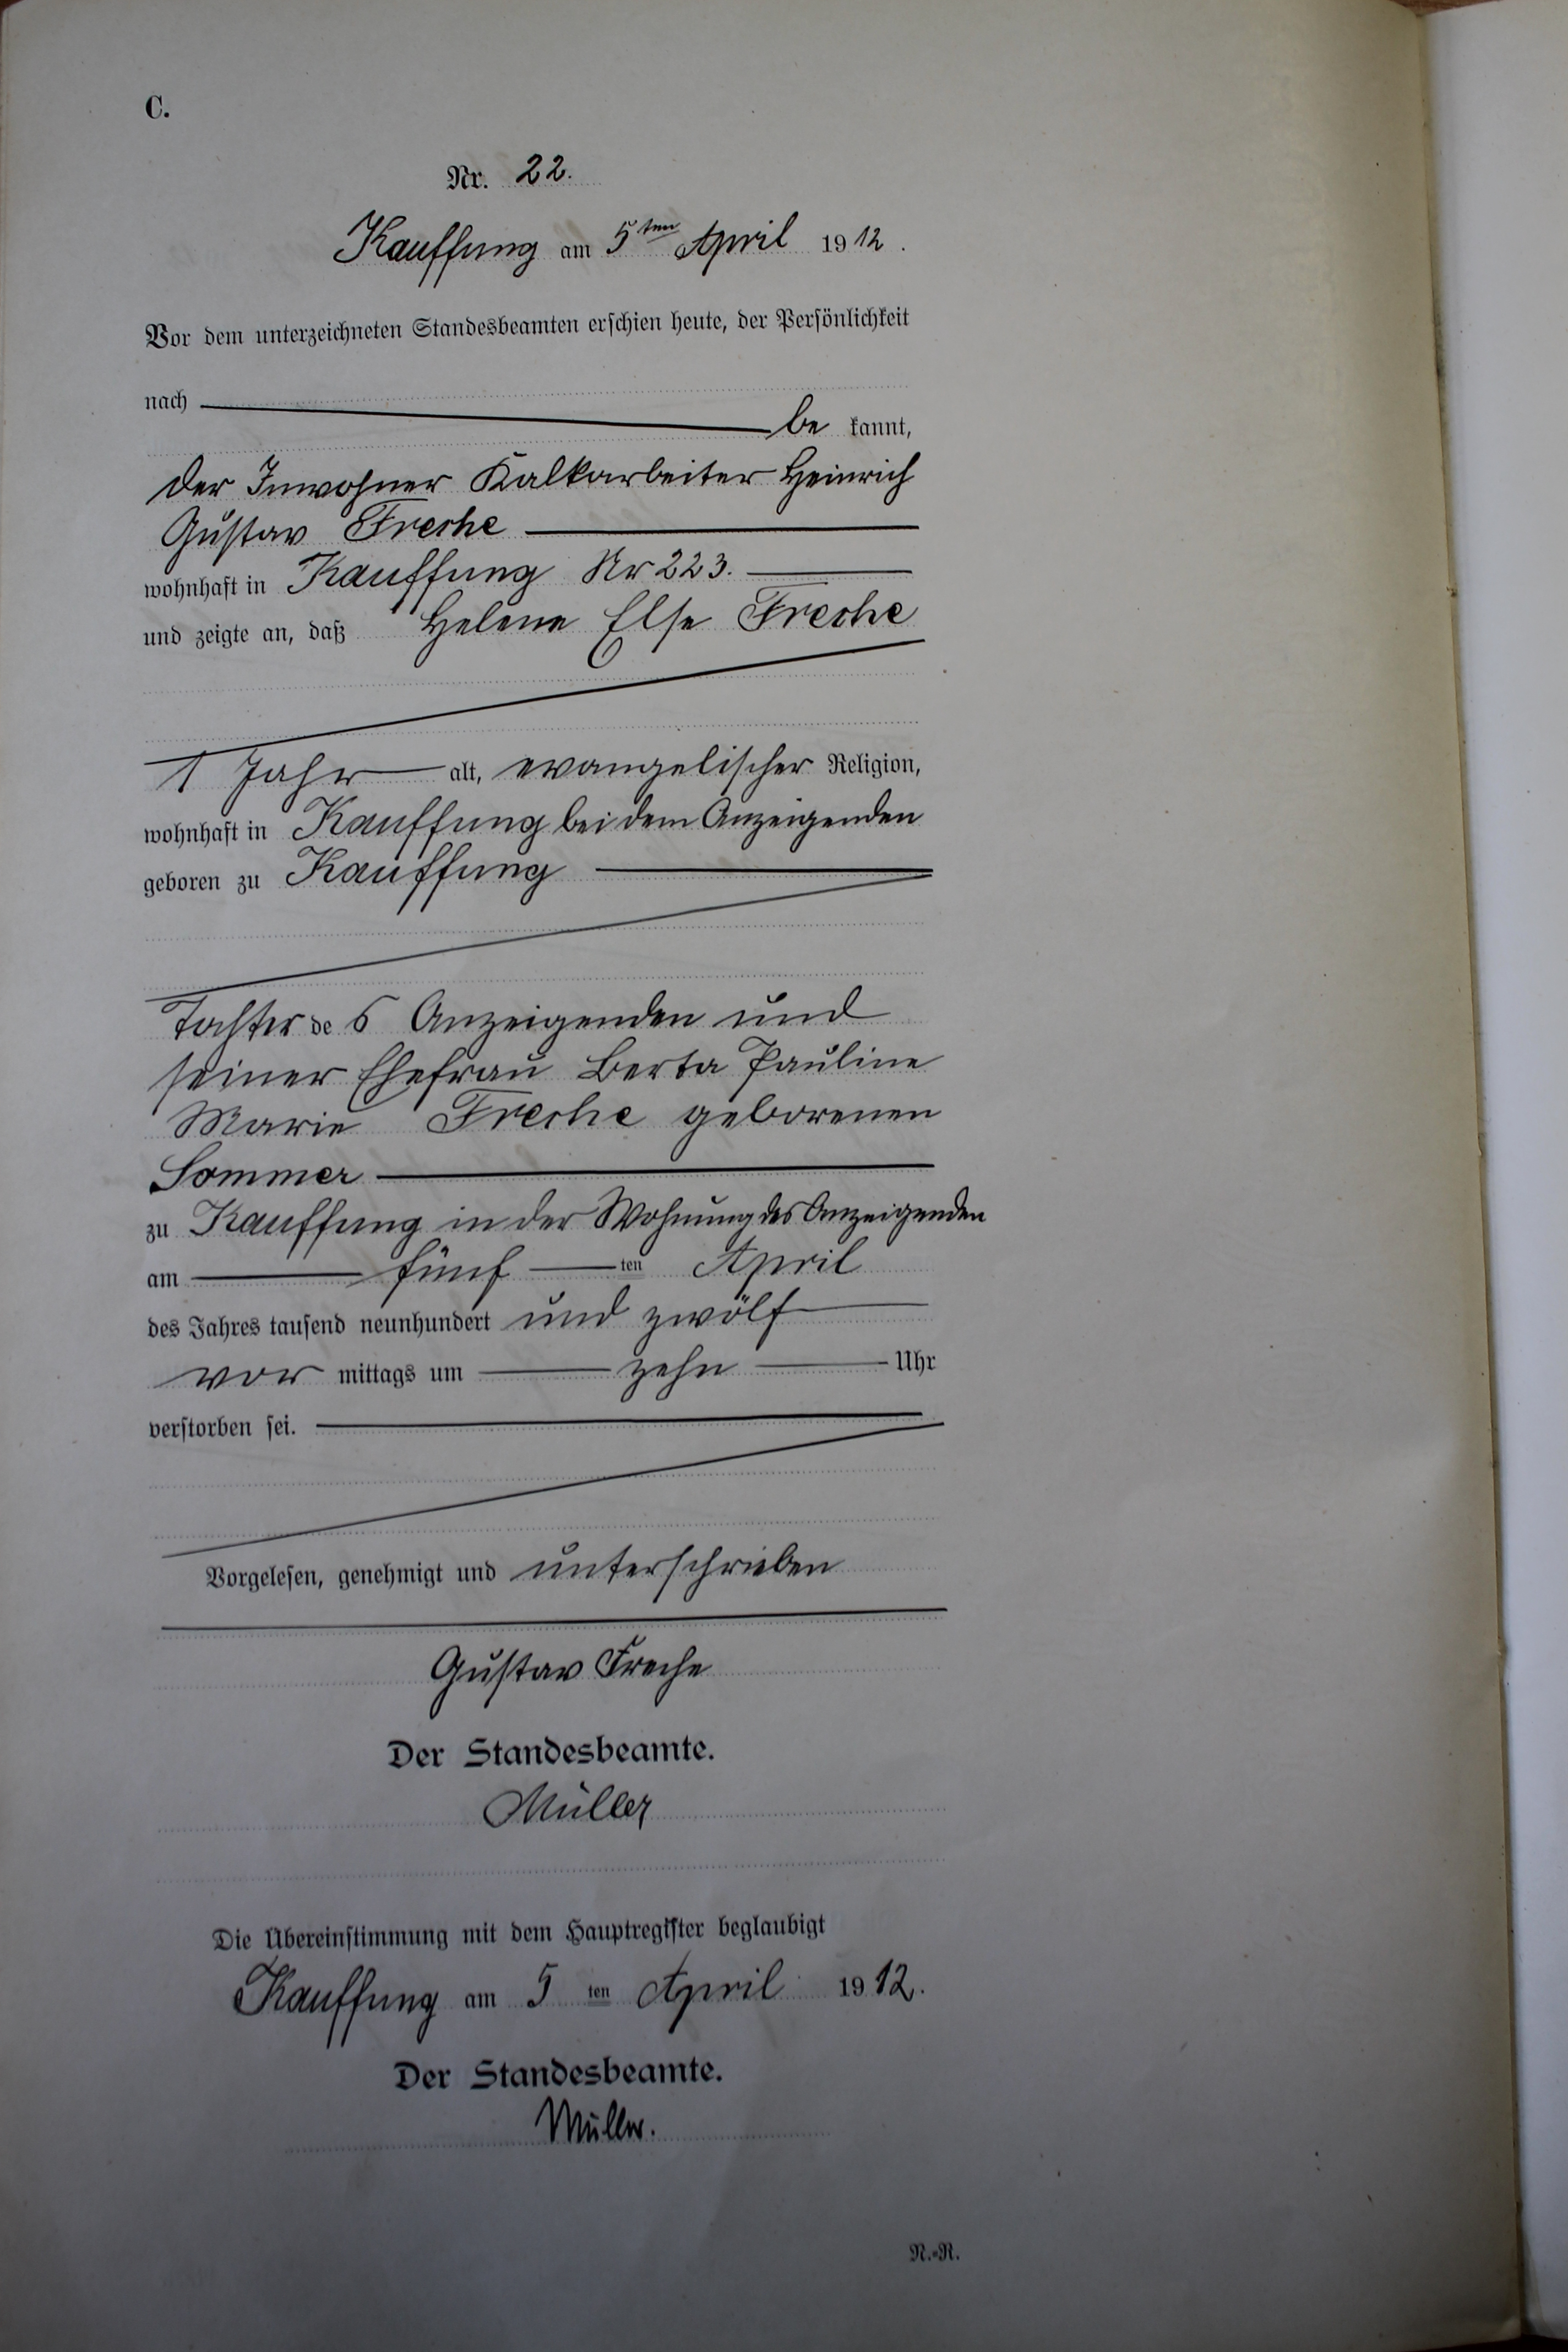 C.
Nr. 22.
Kauffung am 5ten April 1912.
Vor dem unterzeichneten Standesbeamten erschien heute, der Persönlichkeit
nach be kannt,
der Inwohner Kalkarbeiter Heinrich
Gustav Freche
wohnhaft in Kauffung Nr 223.
und zeigte an, daß Helene Else Freche
1 Jahr alt, evangelischer Religion,
wohnhaft in Kauffung bei dem Anzeigenden
geboren zu Kauffung
Tochter des Anzeigenden und
seiner Ehefrau Berta Pauline
Marie Freche geborenen
Sommer
zu Kauffung in der Wohnung des Anzeigenden
am fünften April
des Jahres tausend neunhundert und zwölf
vor mittags um zehn Uhr
verstorben sei.
Vorgelesen, genehmigt und unterschrieben
Gustav Freche
Der Standesbeamte.
Müller
Die Übereinstimmung mit dem Hauptregister beglaubigt
Kauffung am 5 ten April 1912.
Der Standesbeamte.
Müller.
N.-R.